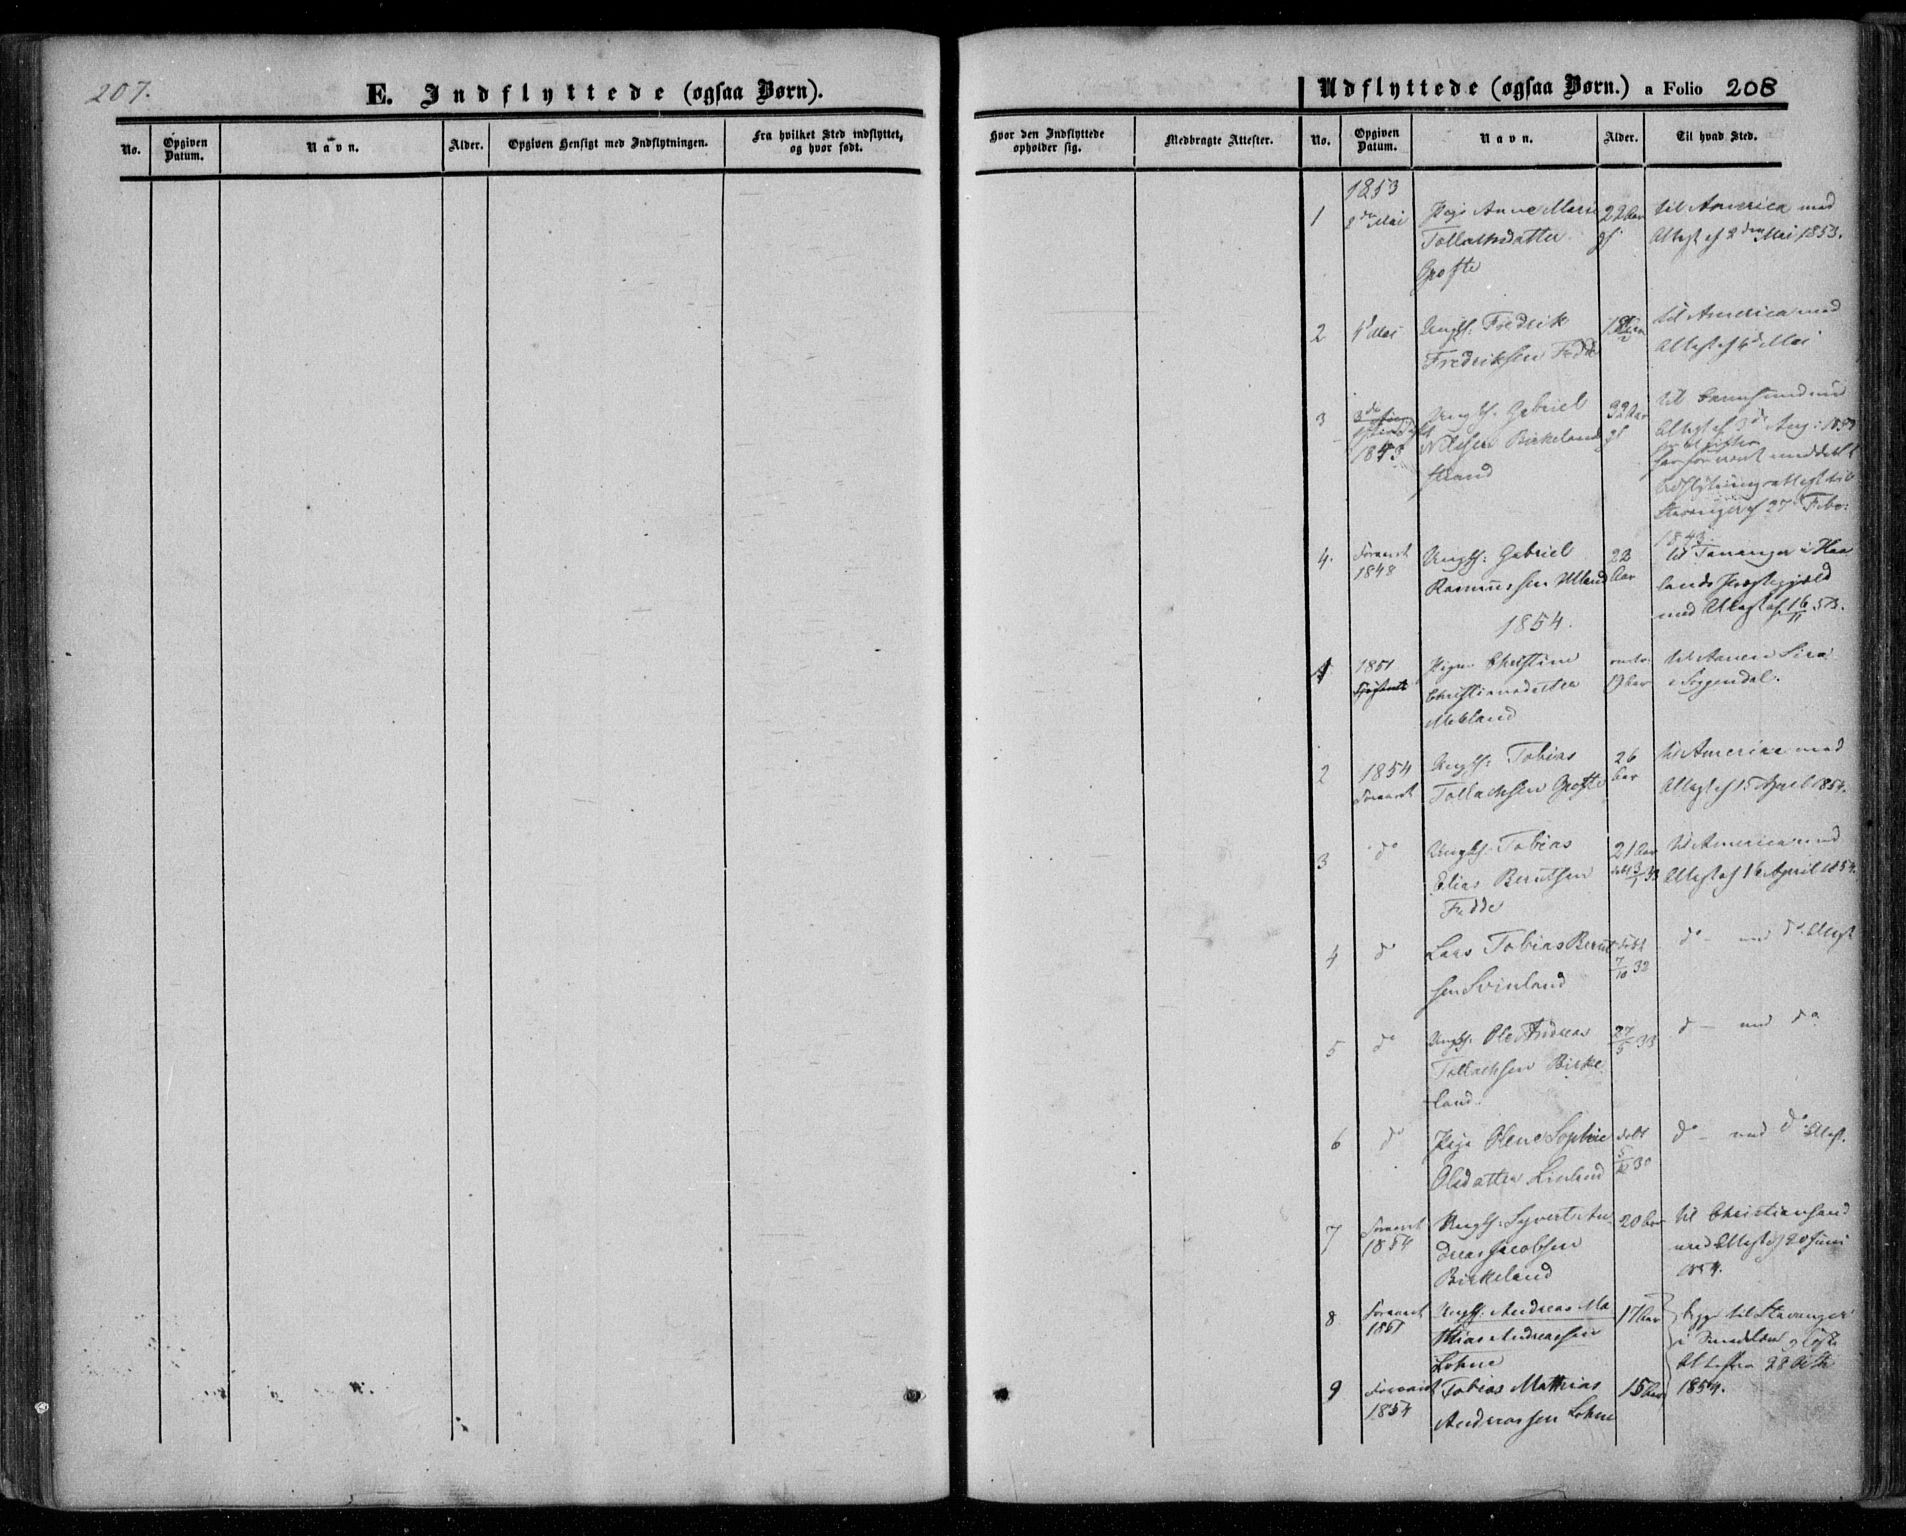 207.
E. Indflyttede (ogsaa Børn).
No. Opgiven Datum. Navn. Alder. Opgiven Hensigt med Indflytningen. Fra hvilket Sted indflyttet, og hvor født.
Hvor den Indflyttede opholder sig. Medbragte Attester.
Udflyttede (ogsaa Børn.) a Folio 208
No. Opgiven Datum. Navn. Alder. Til hvad Sted.
1853
1 2den Mai Pige Anne Marie 22 Aar til America med
Tollachsdatter gl Attest af 2den Mai 1853.
Grøfte
2 4d Mai Ungk: Fredrik til America med
Fredriksen Fedde Attest af 4d Mai
3 3die Aug Ungk: Gabriel 32 Aar til
1843 Nilssen Birkeland gl Attest af 3d Aug: 1853
Strand
Udflytningsattest til
Stavanger af 27d Febr:
1843.
4. Foraaret Ungk: Gabriel 23 til Tananger i Haa
1848 Rasmussen Ulland Aar lands Præstegjeld
med Attest af 16/11 53.
1854.
1 1851 Pigen Christine til Aanen Sira
Christiansdatter 19 Aar i Soggendal.
Mebland
2 1854 Ungk: Tobias 26 til America med
Foraaret Tollachsen Grøfte Aar Attest af 15 April 1854.
3 do Ungk: Tobias 21 Aar til America med
Elias Berntsen 33 Attest af 16 April 1854.
Fedde
4 do Lars Tobias Bernt født do – med do Attest
sen Svinland 7/10 32
5 do Ungk: Ole Andreas 27/5 33 do – med do
Tollachsen Birke
land.
6 do Pige Olene Sophie født do – med do Attest.
Olsdatter Linland 30
7 Foraaret Ungk: Syvert An 20 Aar til Christiansand
1854 dreas Jacobsen med Attest af 20 Juni
Birkeland 1854.
8 Foraaret Ungk: Andreas Ma 17 Aar til Stavanger
1851 thias Andreassen
Lohne Attester 28
9 Foraaret Tobias Mathias 15 Aar 1854.
1854 Andreassen Lohne